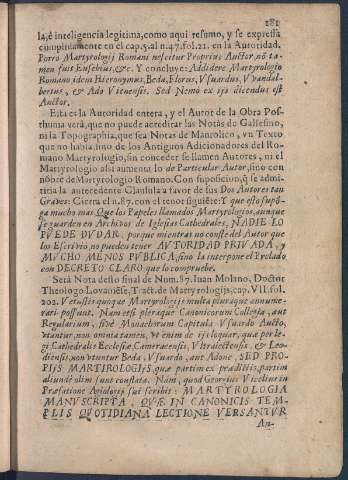 181
la, è inteligencia legitima, como aqui resumo, y se expressa
cumplidamente en el cap. 5. al n. 47. fol. 21. en la Autoridad.
Porro Martyrologij Romani nescitur Proprius Auctor, nō ta-
men fuit Eusebius, &c. Y concluye: Addidere Martyrologio
Romano idem Hieronymus, Beda, Florus, Vsuardus, Vvandal-
bertus, & Ado Vienensis. Sed Nemo ex ijs dicendus est
Auctor.
Esta es la Autoridad entera, y el Autor de la Obra Pos-
thuma verà, que no puede acreditar las Notas de Gallesino,
ni la Topographia, que sea Notas de Maurolico, vn Texto
que no habla sino de los Antiguos Adicionadores del Ro-
mano Martyrologio, sin conceder se llamen Autores, ni el
Martyrologio assi aumenta lo de Particular Autor, sino con
nōbre de Martyrologio Romano. Con suposicion, q̄ se admi-
tiria la antecedente Clausula a favor de sus Dos Autores tan
Graves: Cierra el n. 87. con el tenor siguiēte: Y que esto supō-
ga mucho mas Que los Papeles llamados Martyrologios, aunque
se guarden en Archivos de Iglesias Cathedrales, NADIE LO
PUEDE DUDAR, porque mientras no conste del Autor que
los Escriviò no pueden tener AUTORIDAD PRIVADA, y
MUCHO MENOS PUBLICA, sino la interpone el Prelado
con DECRETO CLARO que lo compruebe.
Serà Nota desto final de Num. 87. Iuan Molano, Doctor
Theologo Lovaniēse, Tract. de Martyrologijs, cap. VII. fol.
202. Vetustis quoque Martyrologijs multa pluraque annume-
rari possunt. Nam etsi pleraque Canonicorum Collegia, aut
Regularium, sivè Monachorum Capitula Vsuardo Aucto,
vtantur, non omnia tamen. Vt enim de ijs loquar, quæ per le-
gi, Cathedralis Ecclesiæ Cameracensis, Vltraiectensis, & Leo-
diensis, non vtuntur Beda, Vsuardo, aut Adone, SED PRO-
PIJS MARTIROLOGIJS, quæ partim ex prædictis, partim
aliundè olim sunt conflata. Plan, quod Georgius Vicelius in
Præfatione Agiologij sui scribit: MARTYROLOGIA
MANVSCRIPTA, QVÆ IN CANONICIS TEM-
PLIS QVOTIDIANA LECTIONE VERSANTVR
An-